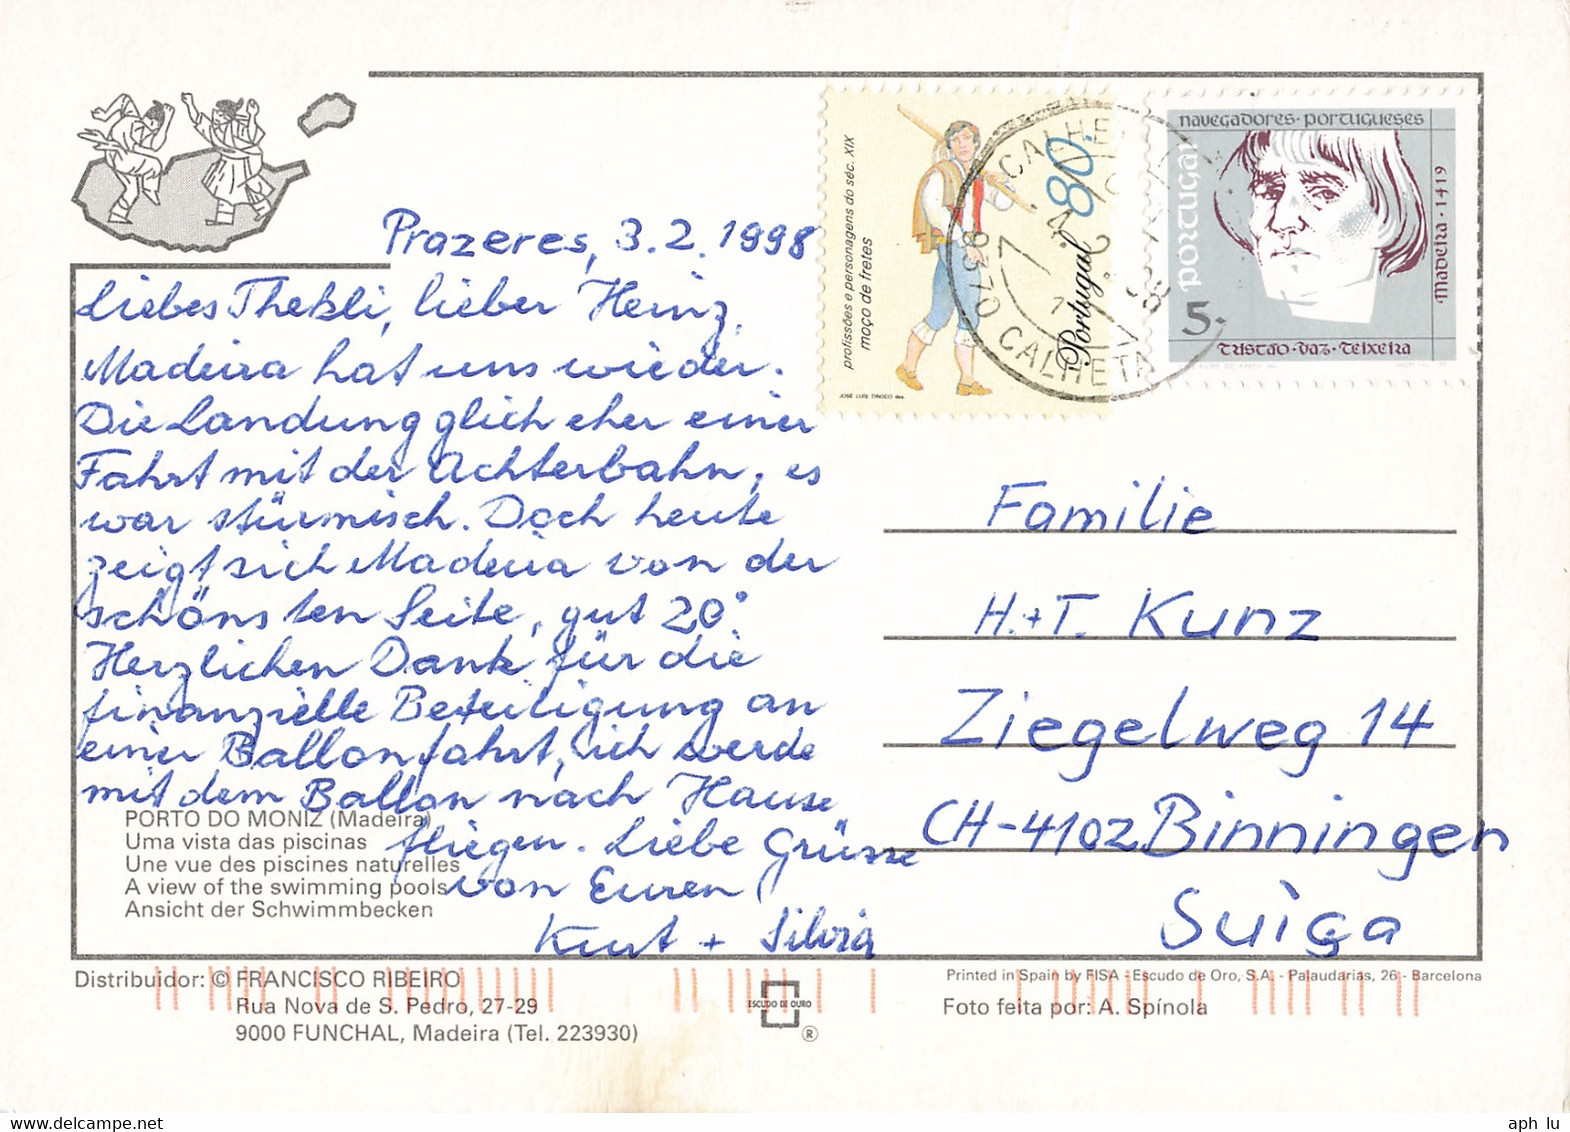 Prazeres, 3.2.1998
Liebes Thekli, lieber Heinz,
Madeira hat uns wieder.
Die Landung glich eher einer
Fahrt mit der Achterbahn, es
war stürmisch. Doch heute
zeigt sich Madeira von der
schönsten Seite, gut 20°.
Herzlichen Dank für die
finanzielle Beteiligung an
einer Ballonfahrt, ich werde
mit dem Ballon nach Hause
fliegen. Liebe Grüsse
von Euren
Kurt + Silvia
PORTO DO MONIZ (Madeira)
Uma vista das piscinas
Une vue des piscines naturelles
A view of the swimming pools
Ansicht der Schwimmbecken
profissões e personagens do séc. XIX
moço de fretes
80.
Portugal
JOSÉ LUIS TINOCO des.
CALHETA
9370 CALHETA
navegadores·portugueses
portugal
madeira·1419
5.
tristão·vaz·teixeira
Familie
H.+T. Kunz
Ziegelweg 14
CH-4102 Binningen
Suiça
Distribuidor: © FRANCISCO RIBEIRO
Rua Nova de S. Pedro, 27-29
9000 FUNCHAL, Madeira (Tel. 223930)
ESCUDO DE OURO
®
Printed in Spain by FISA - Escudo de Oro, S.A. - Palaudarias, 26 - Barcelona
Foto feita por: A. Spínola
aph lu